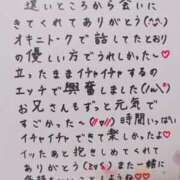 遠いところから会いに
きてくれてありがとう(^^)
オキニトークで話してたとおり
の優しい方でうれしかった〜♡
立ったままイチャイチャするの
エッチで興奮しました(/ω＼)
お兄さんもずっと元気で
すごかった〜(〃▽〃)時間いっぱい
イチャイチャできて楽しかったよ♡
イッたあと抱きしめてくれて
ありがとう(≧▽≦)また一緒に